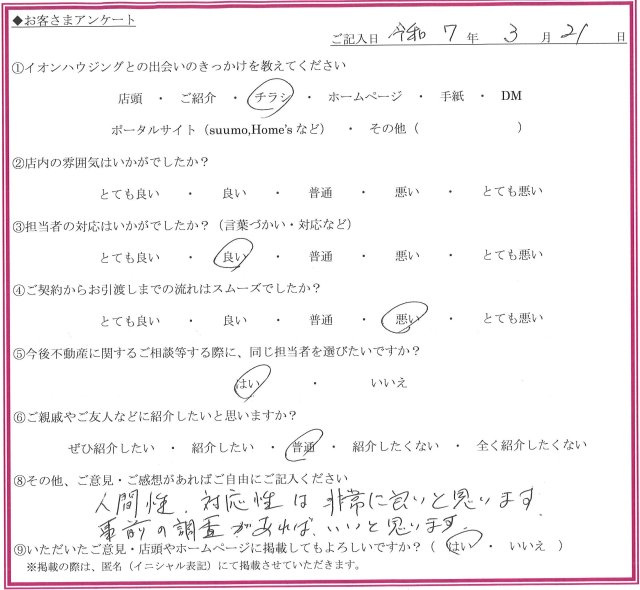 ◆お客さまアンケート
ご記入日 令和 7 年 3 月 21 日
①イオンハウジングとの出会いのきっかけを教えてください
店頭 ・ ご紹介 ・ チラシ ・ ホームページ ・ 手紙 ・ DM
ポータルサイト（suumo,Home'sなど） ・ その他（ ）
②店内の雰囲気はいかがでしたか？
とても良い ・ 良い ・ 普通 ・ 悪い ・ とても悪い
③担当者の対応はいかがでしたか？（言葉づかい・対応など）
とても良い ・ 良い ・ 普通 ・ 悪い ・ とても悪い
④ご契約からお引渡しまでの流れはスムーズでしたか？
とても良い ・ 良い ・ 普通 ・ 悪い ・ とても悪い
⑤今後不動産に関するご相談等する際に、同じ担当者を選びたいですか？
はい ・ いいえ
⑥ご親戚やご友人などに紹介したいと思いますか？
ぜひ紹介したい ・ 紹介したい ・ 普通 ・ 紹介したくない ・ 全く紹介したくない
⑧その他、ご意見・ご感想があればご自由にご記入ください
人間性、対応性は非常に良いと思います。
事前の調査があれば、いいと思います。
⑨いただいたご意見・店頭やホームページに掲載してもよろしいですか？（ はい ・ いいえ ）
※掲載の際は、匿名（イニシャル表記）にて掲載させていただきます。